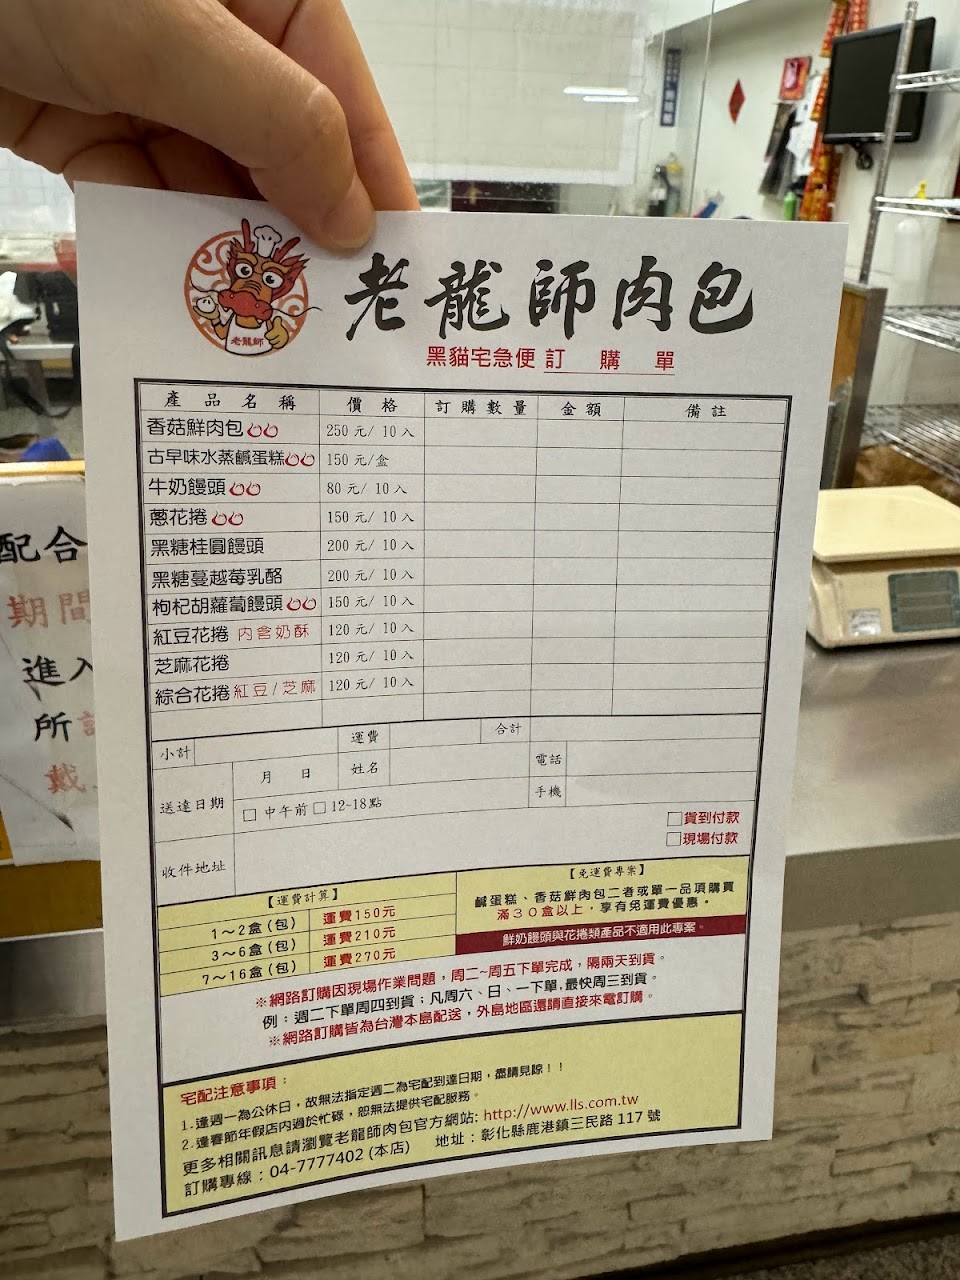 老龍師
老龍師肉包
黑貓宅急便 訂購單
產品名稱 價格 訂購數量 金額 備註
香菇鮮肉包 250元/10入
古早味水蒸鹹蛋糕 150元/盒
牛奶饅頭 80元/10入
蔥花捲 150元/10入
黑糖桂圓饅頭 200元/10入
黑糖蔓越莓乳酪 200元/10入
枸杞胡蘿蔔饅頭 150元/10入
紅豆花捲 內含奶酥 120元/10入
芝麻花捲 120元/10入
綜合花捲 紅豆/芝麻 120元/10入
小計 運費 合計
送達日期 月 日 姓名 電話
□中午前 □12~18點 手機
收件地址
□貨到付款
□現場付款
【運費計算】
1～2盒(包) 運費150元
3～6盒(包) 運費210元
7～16盒(包) 運費270元
【免運費專案】
鹹蛋糕、香菇鮮肉包二者或單一品項購買
滿30盒以上，享有免運費優惠。
鮮奶饅頭與花捲類產品不適用此專案。
※網路訂購因現場作業問題，周二~周五下單完成，隔兩天到貨。
例：週二下單周四到貨；凡周六、日、一下單,最快周三到貨。
※網路訂購皆為台灣本島配送，外島地區還請直接來電訂購。
宅配注意事項：
1.逢週一為公休日，故無法指定週二為宅配到達日期，盡請見諒！！
2.逢春節年假店內過於忙碌，恕無法提供宅配服務。
更多相關訊息請瀏覽老龍師肉包官方網站: http://www.lls.com.tw
訂購專線：04-7777402 (本店) 地址：彰化縣鹿港鎮三民路 117 號
配合
期間
進入
所
戴